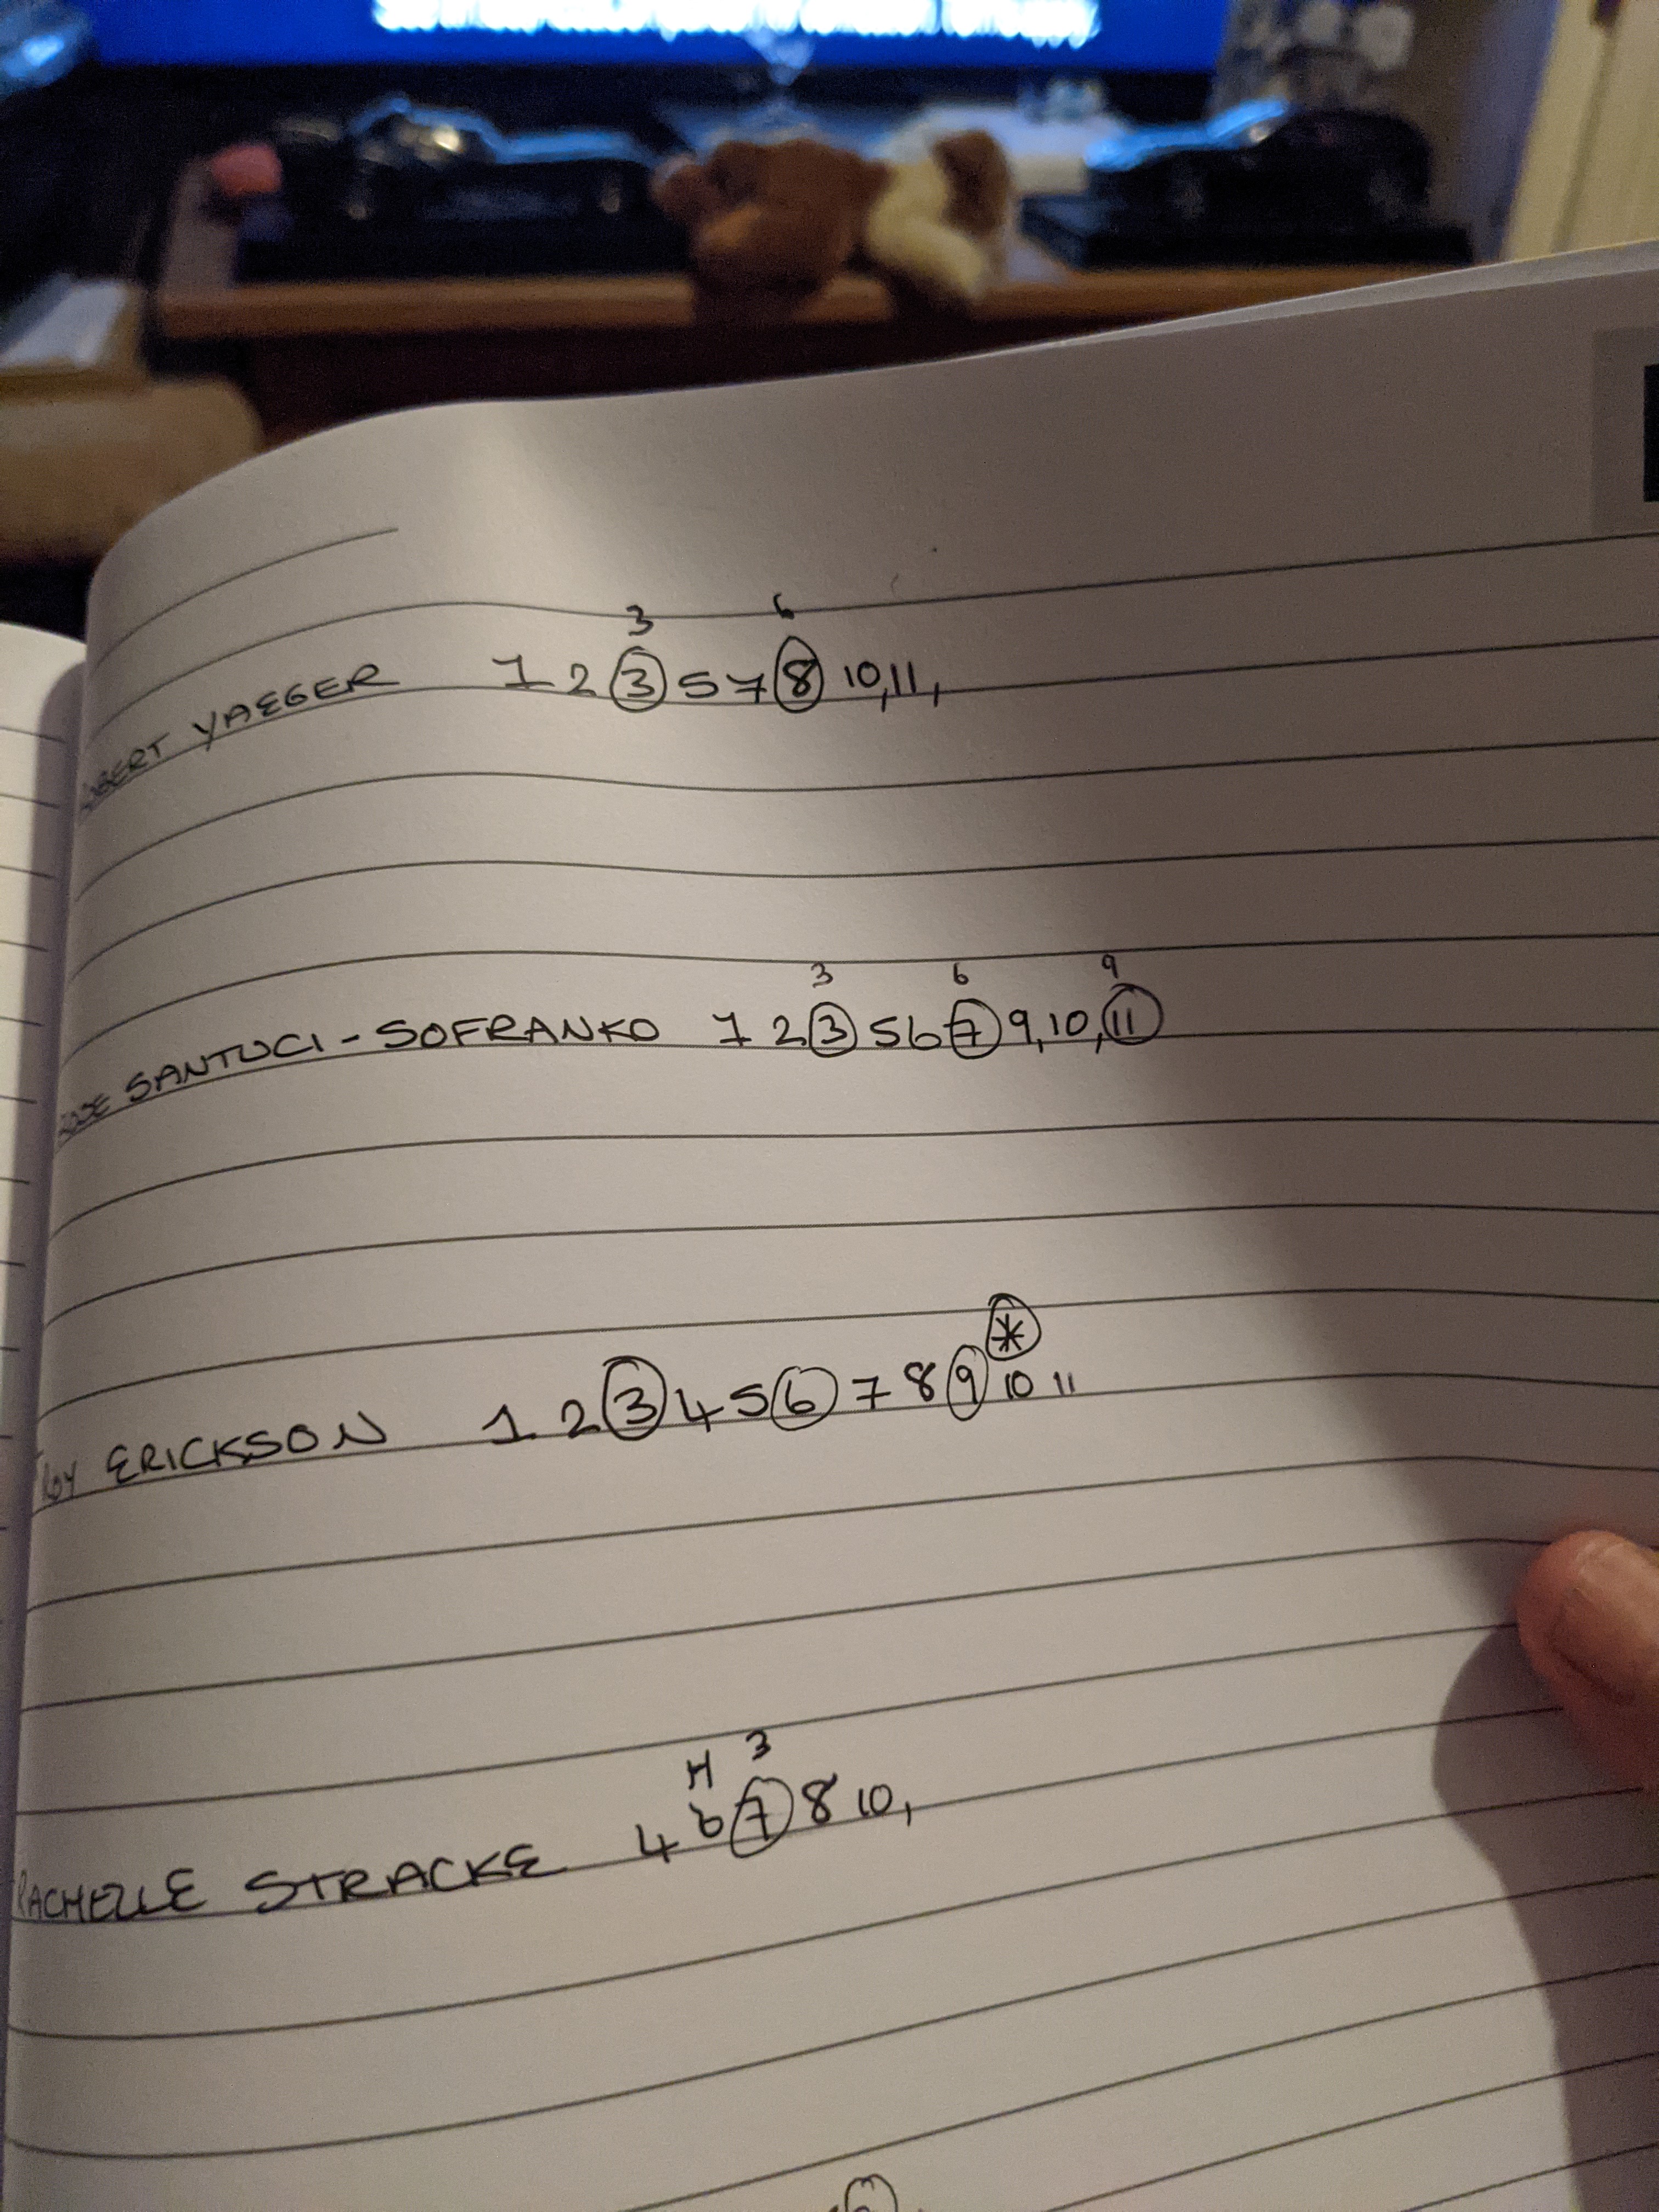 3 6
ROBERT YAEGER 1 2 3 5 7 8 10, 11,
3 6 9
SANTUCI - SOFRANKO 1 2 3 5 6 7 9, 10, 11
*
TROY ERICKSON 1 2 3 4 5 6 7 8 9 10 11
H 3
RACHELLE STRACKE 4 6 7 8 10,